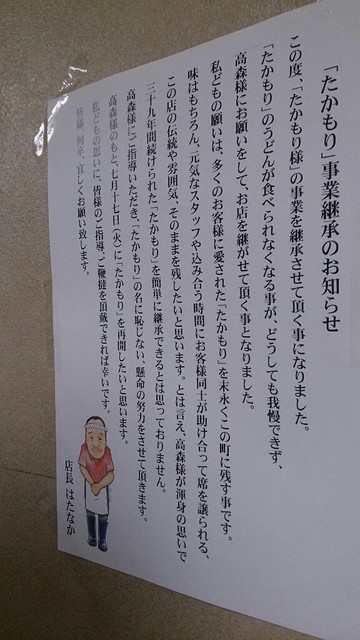 「たかもり」事業継承のお知らせ
この度、「たかもり様」の事業を継承させて頂く事になりました。
「たかもり」のうどんが食べられなくなる事が、どうしても我慢できず、
高森様にお願いをして、お店を継がせて頂く事となりました。
私どもの願いは、多くのお客様に愛された「たかもり」を末永くこの町に残す事です。
味はもちろん、元気なスタッフや込み合う時間にお客様同士が助け合って席を譲られる、
この店の伝統や雰囲気、そのままを残したいと思います。とは言え、高森様が渾身の思いで
三十九年間続けられた「たかもり」を簡単に継承できるとは思っておりません。
高森様にご指導いただき、「たかもり」の名に恥じない、懸命の努力をさせて頂きます。
高森様のもと、七月十七日(火)に「たかもり」を再開したいと思います。
私どもの思いに、皆様のご指導、ご鞭撻を頂戴できれば幸いです。
皆様、何卒、宜しくお願い致します。
店長 はたなか